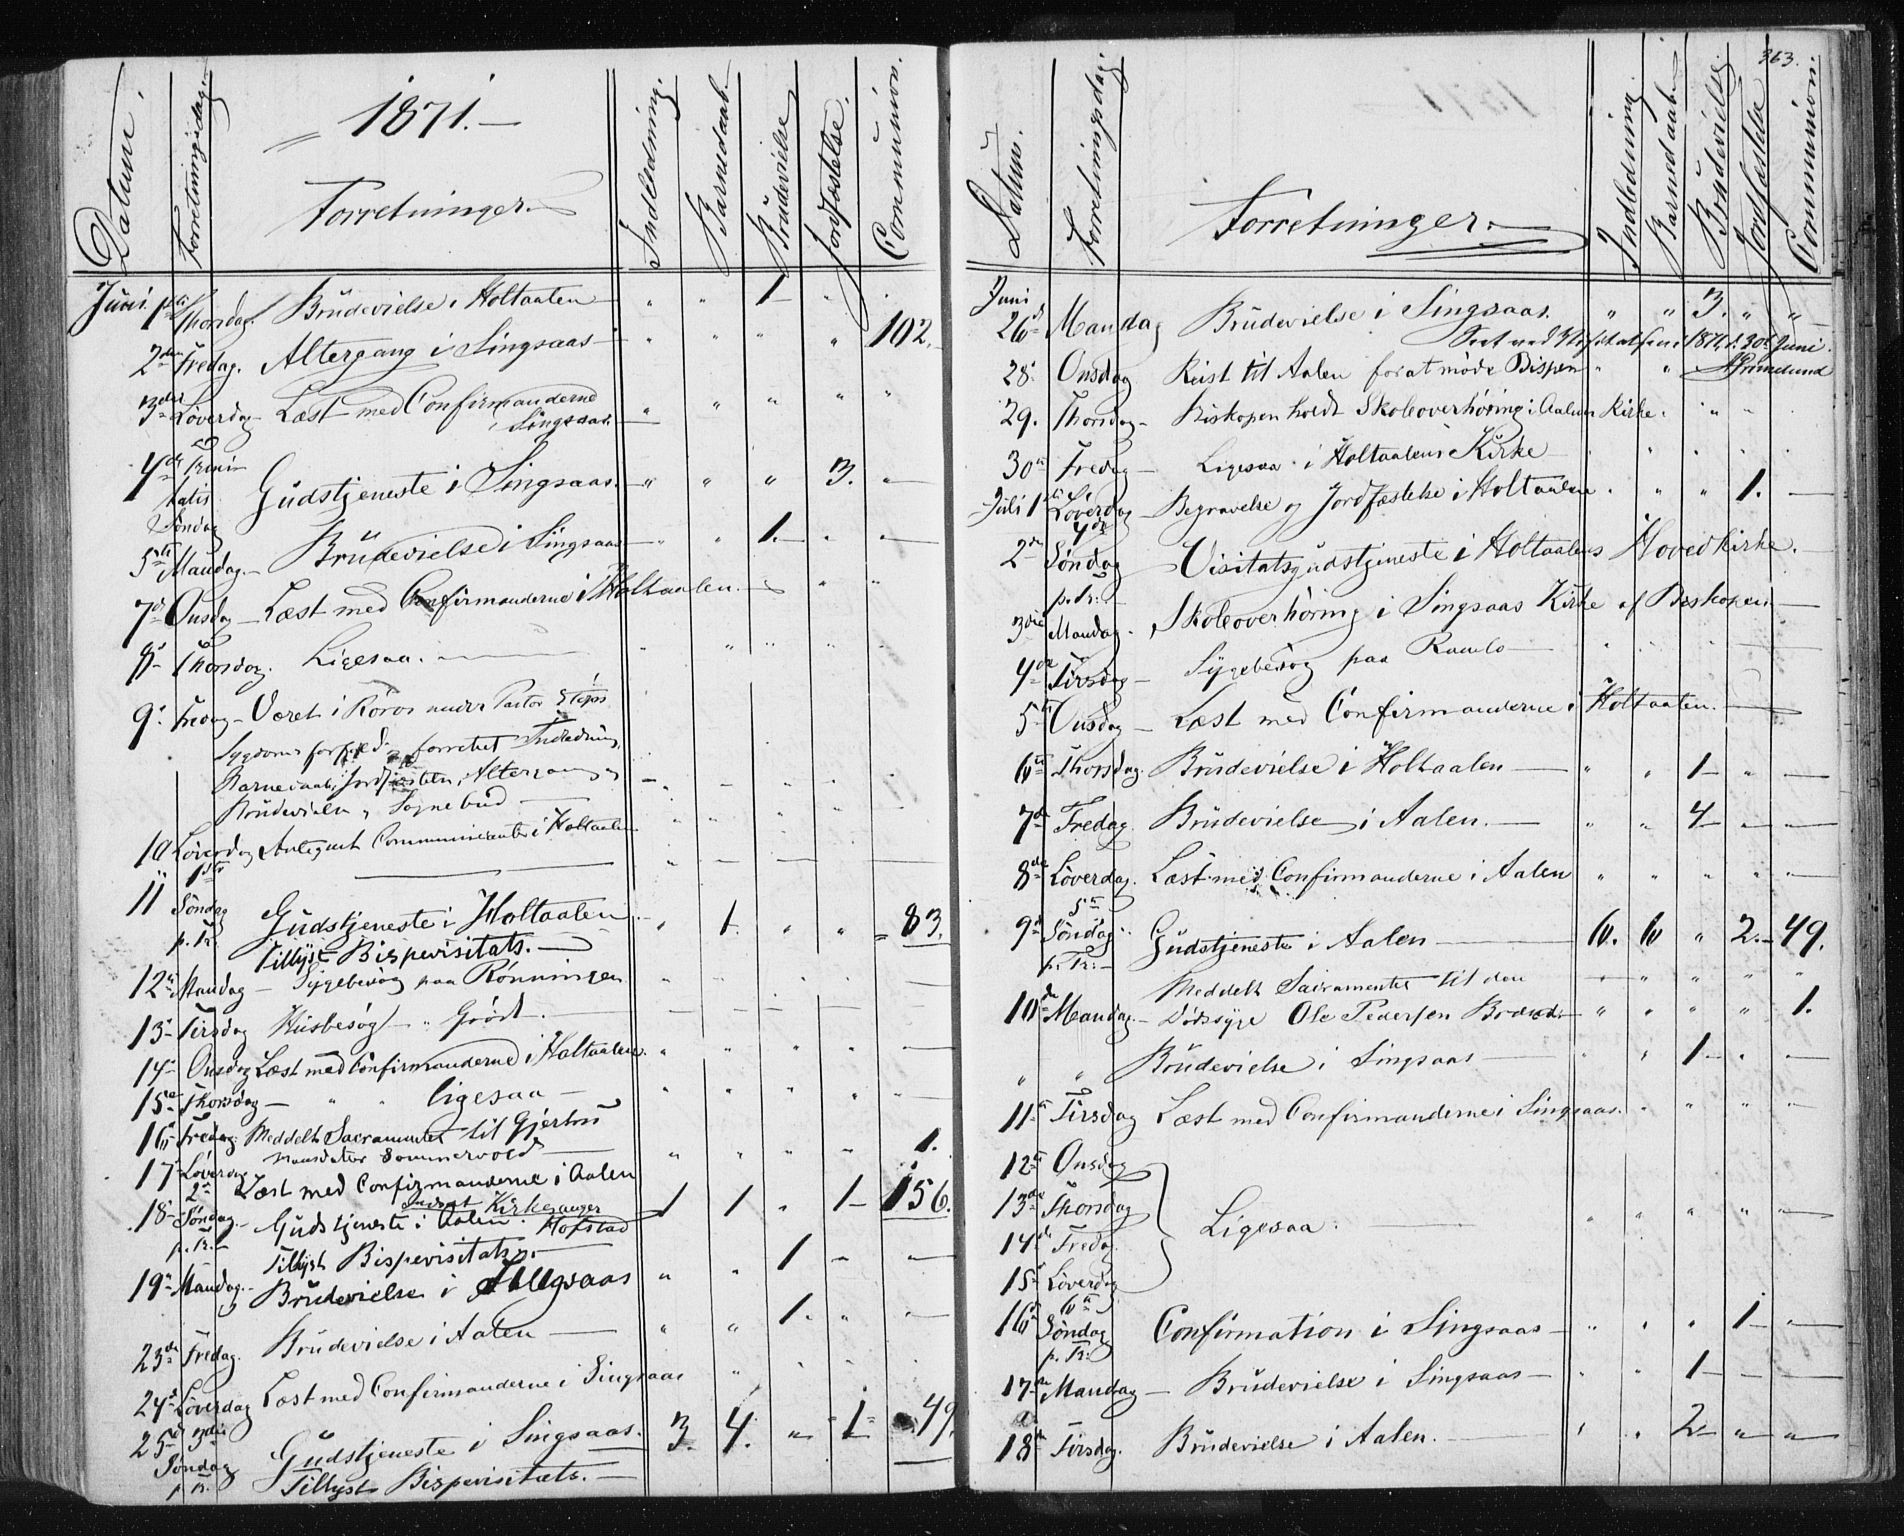 1871.
Datum. Forretningsdag. Forretninger. Indledning. Barnedaab. Brudevielse Jordfæstelse. Communion.
Juni 1ste Thorsdag. Brudevielse i Holtaalen — " " 1 " "
2den Fredag. Altergang i Singsaas — " " " " 102.
3die Løverdag Læst med Confirmanderne " " " " "
i Singsaas.
4de Trini
tatis
Søndag Gudstjeneste i Singsaas. " " " 3. "
5te Mandag. Brudevielse i Singsaas — " " 1. " "
7de Onsdag — Læst med Confirmanderne i Holtaalen. — " "
8de Thorsdag. Ligesaa. — " " " " "
9de Fredag — Været i Røros under Pastor
Sygdoms forfald, forrettet Indledning,
Barnedaab, Jordfæstelse, Altergang,
Brudevielse, Sognebud —
10 Løverdag Antegnet Communicanter i Holtaalen
11 1ste
Søndag Gudstjeneste i Holtaalen. " 1. " " 83.
p. Tr. Tillyst Bispevisitats. —
12te Mandag — Sygebesøg paa Rønningen
13de Tirsdag Husbesøg — " Grødt. —
14de Onsdag Læst med Confirmanderne i Holtaalen. " " " " "
15de Thorsdag — " " ligesaa — " " " " "
16de Fredag. Meddelt Sacramentet til Gjertru
Hansdatter Sommervold — " " " " 1.
17 Løverdag Læst med Confirmanderne i Aalen
18de 2den Søndag. Gudstjeneste i Aalen. Indsat Kirkesanger Hofstad 1 1 " 1 156.
p. Tr. Tillyst Bispevisitats. —
19de Mandag. Brudevielse i Singsaas " " 1 — —
23de Fredag. Brudevielse i Aalen — " " 1. " —
24de Løverdag Læst med Confirmanderne i Singsaas " " " "
25de 3die
Søndag Gudstjeneste i Singsaas. 3. 4. " 1 49.
p. Tr. Tillyst Bispevisitats. —
363.
Datum. Forretningsdag. Forretninger. Indledning Barnedaab Brudevielse. Jordfæstelse Communion.
Juni
26de Mandag Brudevielse i Singsaas. " " 3. " "
Seet ved Visitatsen 1871, d. 30te Juni.
Grimelund
28de Onsdag Reist til Aalen for at møde Bispen " "
29. Thorsdag — Biskopen holdt Skoleoverhøring i Aalens Kirke. " " "
30te Fredag — Ligesaa i Holtaalens Kirke — " " " "
Juli 1ste Løverdag — Begravelse og Jordfæstelse i Holtaalen " " " 1. —
2den 4de
Søndag — Visitatsgudstjeneste i Holtaalens Hovedkirke.
p. Tr: —
3die Mandag. Skoleoverhøring i Singsaas Kirke af Biskopen —
4de Tirsdag — Sygebesøg paa Ramlo — " " " " "
5te Onsdag — Læst med Confirmanderne i Holtaalen. —
6te Thorsdag. Brudevielse i Holtaalen — " " 1 — " —
7de Fredag. Brudevielse i Aalen. — " " 4 — " —
8de Løverdag. Læst med Confirmanderne i Aalen " " " " "
9de 5te
Søndag Gudstjeneste i Aalen — 6. 6 " 2. 49.
p. Tr: —
Meddelt Sacramentet til den " " " " "
10de Mandag. — dødssyge Ole Pedersen " " " " 1.
" " Brudevielse i Singsaas — " " 1 — " —
11te Tirsdag Læst med Confirmanderne i Singsaas. " " " "
12te Onsdag
13de Thorsdag
14de Fredag. Ligesaa. — " " " " "
15de Løverdag
16de 6te
Søndag Confirmation i Singsaas — " " " 1 — —
p. Tr:
17de Mandag — Brudevielse i Singsaas — " " 1 — — —
18de Tirsdag. Brudevielse i Aalen. — " " 2 — " "